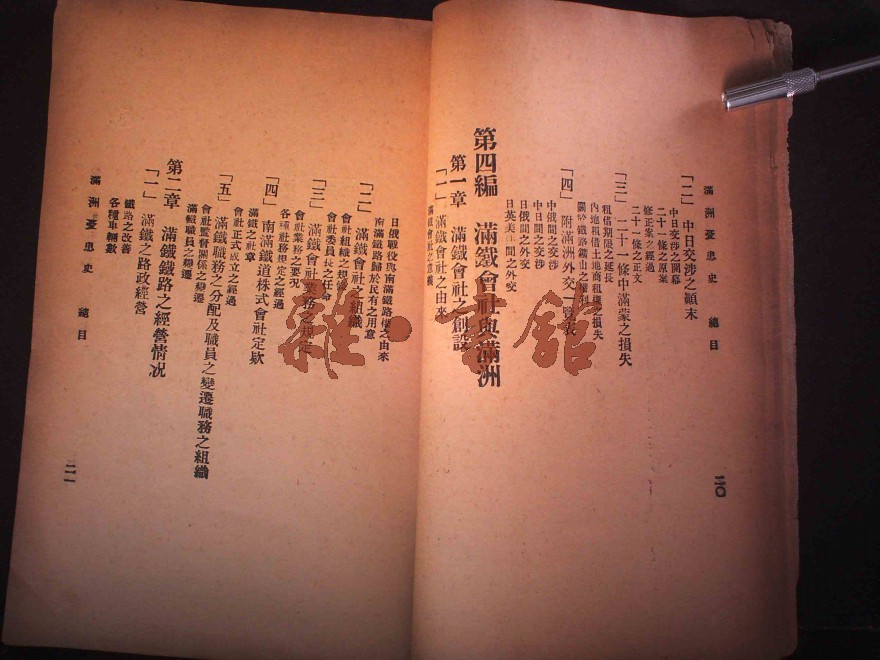 滿洲憂患史 總目
「二」中日交涉之顚末
中日交涉之開幕
二十一條之原案
修正案之經過
二十一條之正文
「三」二十一條中滿蒙之損失
租借期限之延長
內地租借土地商租權之損失
關於鐵路鑛山之權利
「四」附滿洲外交一覽表
中俄間之交涉
中日間之交涉
日俄間之外交
日英美間之外交
第四編 滿鐵會社與滿洲
第一章 滿鐵會社之創設
「一」滿鐵會社之由來
滿鐵會社之意義
二〇
日俄戰役與南滿鐵路權之由來
南滿鐵路歸於民有之用意
「二」滿鐵會社之組織
會社組織之規條
會社委員長之任命
「三」滿鐵會社業務之規定
會社業務之要況
各種社務規定之經過
「四」南滿鐵道株式會社定欵
滿鐵之社章
會社正式成立之經過
「五」滿鐵職務之分配及職員之變遷職務之組織
會社監督關係之變遷
滿鐵職員之變遷
第二章 滿鐵鐵路之經營情況
「一」滿鐵之路政經營
鐵路之改善
各種車輛數
滿洲憂患史 總目
二一
雜·書館